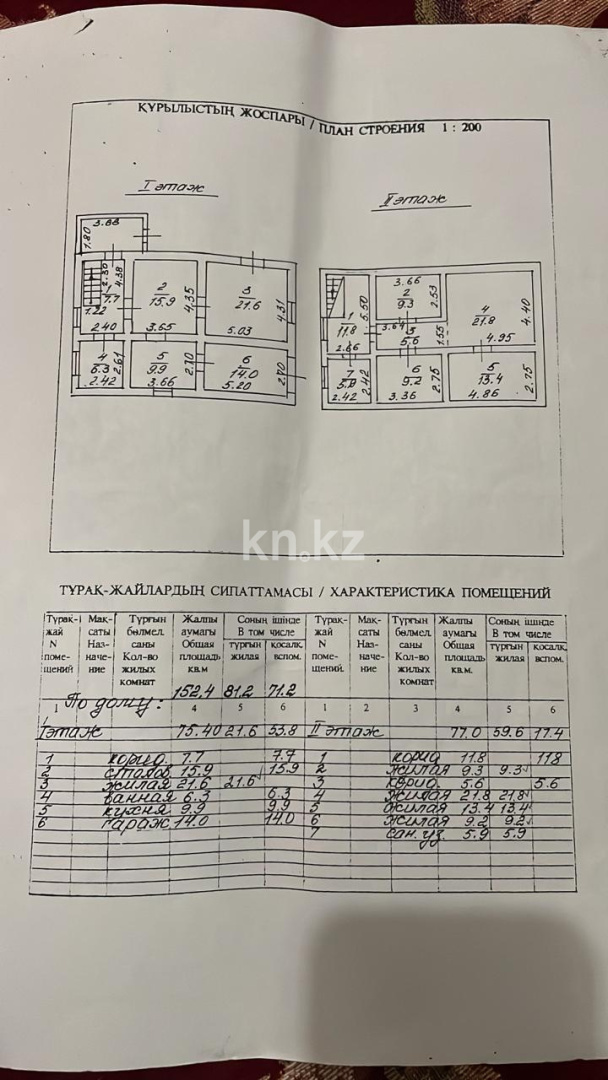 ҚҰРЫЛЫСТЫҢ ЖОСПАРЫ / ПЛАН СТРОЕНИЯ 1 : 200
I этаж
II этаж
3.88
1.80
2.30
4.38
1
7.7
1.22
2.40
2
15.9
4.35
3.65
3
21.6
4.31
5.03
4
6.3
2.61
2.42
5
9.9
2.70
3.66
6
14.0
2.70
5.20
1
11.8
5.60
2.66
3.66
2
9.3
2.53
3.64
3
5.6
1.55
4
21.8
4.40
4.95
7
5.9
2.42
2.42
6
9.2
2.75
3.36
5
13.4
2.75
4.86
kn.kz
ТҰРАҚ-ЖАЙЛАРДЫҢ СИПАТТАМАСЫ / ХАРАКТЕРИСТИКА ПОМЕЩЕНИЙ
Тұрақ- Мақ- Тұрғын Жалпы Соның ішінде Тұрақ- Мақ- Тұрғын Жалпы Соның ішінде
жай саты бөлмел. аумағы В том числе жай саты бөлмел. аумағы В том числе
N Наз- саны Общая тұрғын қосалқ. N Наз- саны Общая тұрғын қосалқ.
поме- наче- Кол-во площадь жилая вспом. поме- наче- Кол-во площадь жилая вспом.
щений ние жилых кв.м щений. ние жилых кв.м.
комнат комнат
По дому: 152,4 81,2 71.2
1 4 5 6 1 2 3 4 5 6
I этаж 75.40 21.6 53.8 II этаж 77.0 59.6 17.4
1 корид. 7.7 7.7 1 корид 11.8 11.8
2 столов. 15.9 15.9 2 жилая 9.3 9.3
3 жилая 21.6 21.6 3 корид. 5.6 5.6
4 ванная 6.3 6.3 4 жилая 21.8 21.8
5 кухня 9.9 9.9 5 жилая 13.4 13.4
6 гараж 14.0 14.0 6 жилая 9.2 9.2
7 сан.уз. 5.9 5.9